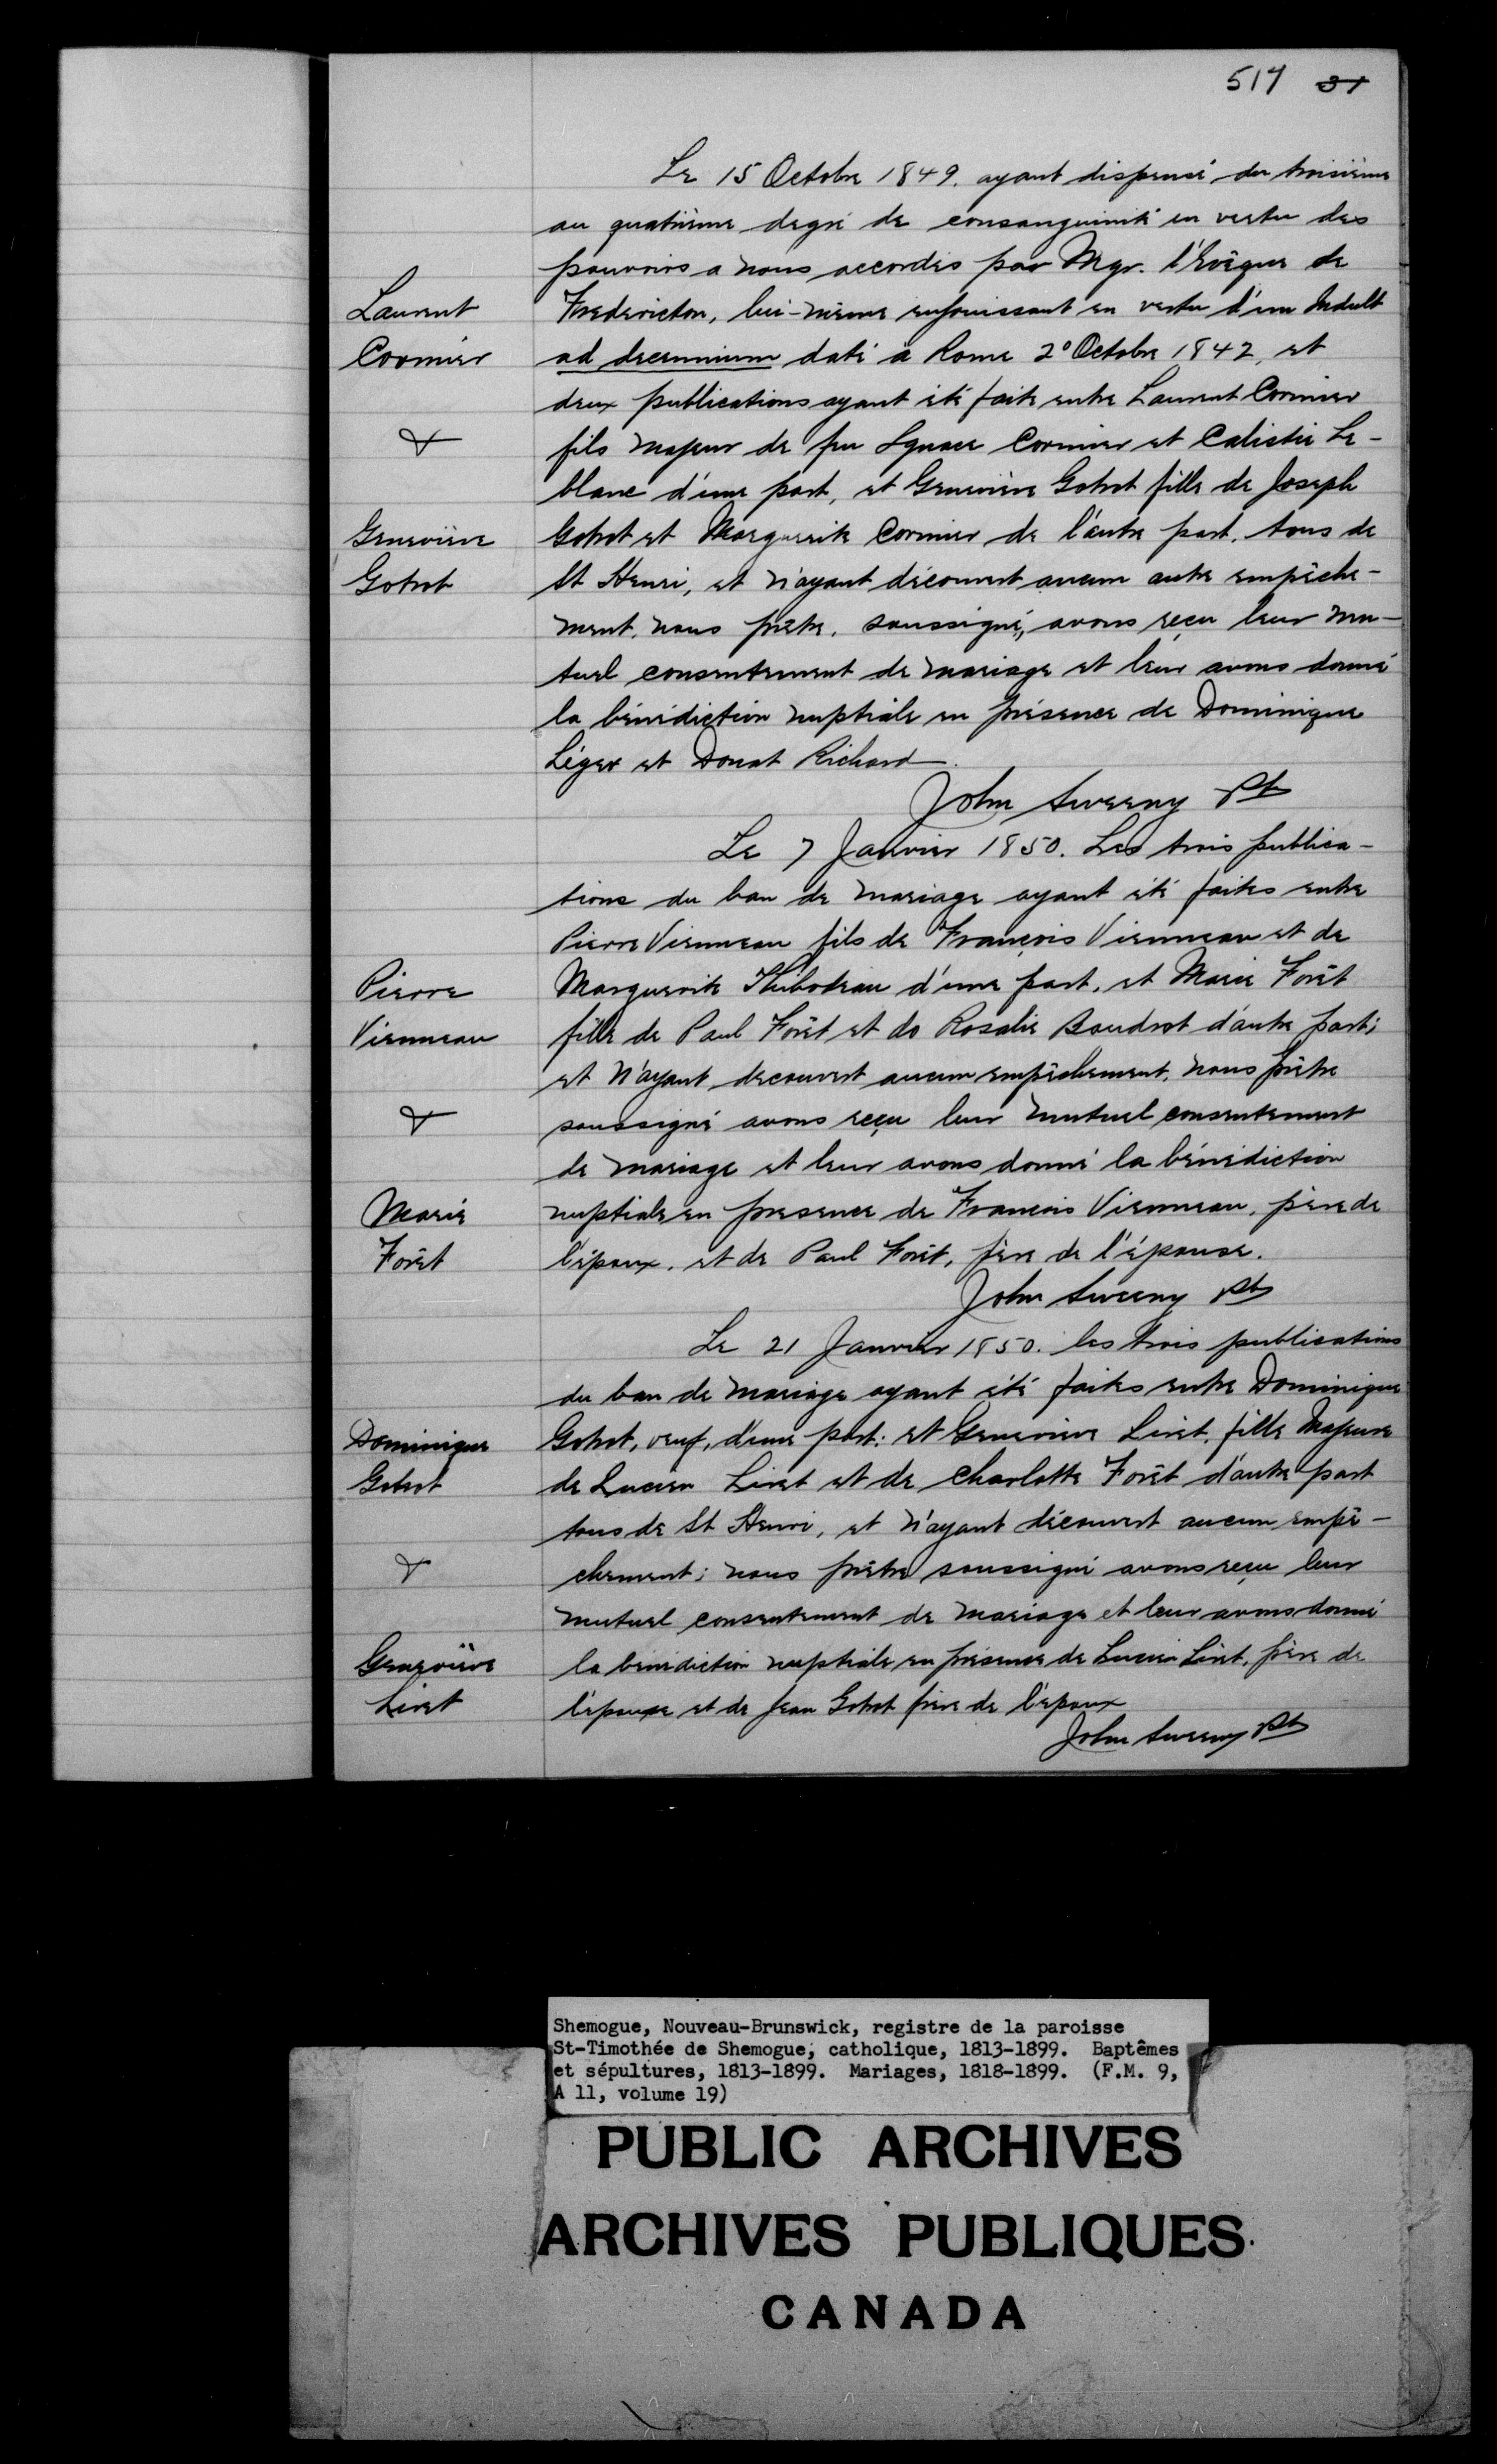 517 31
Le 15 Octobre 1849. ayant dispensé du troisième
au quatrième degré de consanguinité en vertu des
pouvoirs a nous accordés par Mgr. l'Evêque de
Laurent
Fredericton, lui-même enjouissant en vertu d'un Indult
Cormier
ad decennium daté à Rome 2º Octobre 1842, et
deux publications ayant été faite entre Laurent Cormier
&
fils majeur de feu Ignace Cormier et Calistie Le-
blanc d'une part, et Geneviève Gotrot fille de Joseph
Geneviève
Gotrot et Marguerite Cormier de l'autre part. tous de
Gotrot
St Henri, et n'ayant découvert aucun autre empêche-
ment, nous prêtre, soussigné, avons reçu leur mu-
tuel consentement de mariage et leur avons donné
la bénédiction nuptiale en présence de Dominique
Léger et Donat Richard.
John Sweeny Pt
Le 7 Janvier 1850. Les trois publica-
tions du ban de mariage ayant été faites entre
Pierre Vienneau fils de François Vienneau et de
Pierre
Marguerite Thibodeau d'une part, et Marie Forêt
Vienneau
fille de Paul Forêt et de Rosalie Boudrot d'autre part;
et n'ayant decouvert aucun empêchement, nous prêtre
&
soussigné avons reçu leur mutuel consentement
de mariage et leur avons donné la bénédiction
Marie
nuptiale en presence de Francois Vienneau, père de
Forêt
l'époux, et de Paul Forêt, père de l'épouse.
John Sweeny Pt
Le 21 Janvier 1850. les trois publications
du ban de mariage ayant été faites entre Dominique
Dominique
Gotrot, veuf, d'une part; et Geneviève Liret, fille Majeure
Gotrot
de Lucien Liret et de Charlotte Forêt d'autre part
tous de St Henri, et n'ayant découvert aucun empê-
&
chement; nous prêtre soussigné avons reçu leur
mutuel consentement de mariage et leur avons donné
Geneviève
la bénédiction nuptiale en présence de Lucien Liret, père de
Liret
l'épouse et de Jean Gotrot frère de l'époux
John Sweeny Pt
Shemogue, Nouveau-Brunswick, registre de la paroisse
St-Timothée de Shemogue, catholique, 1813-1899. Baptêmes
et sépultures, 1813-1899. Mariages, 1818-1899. (F.M. 9,
A 11, volume 19)
PUBLIC ARCHIVES
ARCHIVES PUBLIQUES
CANADA